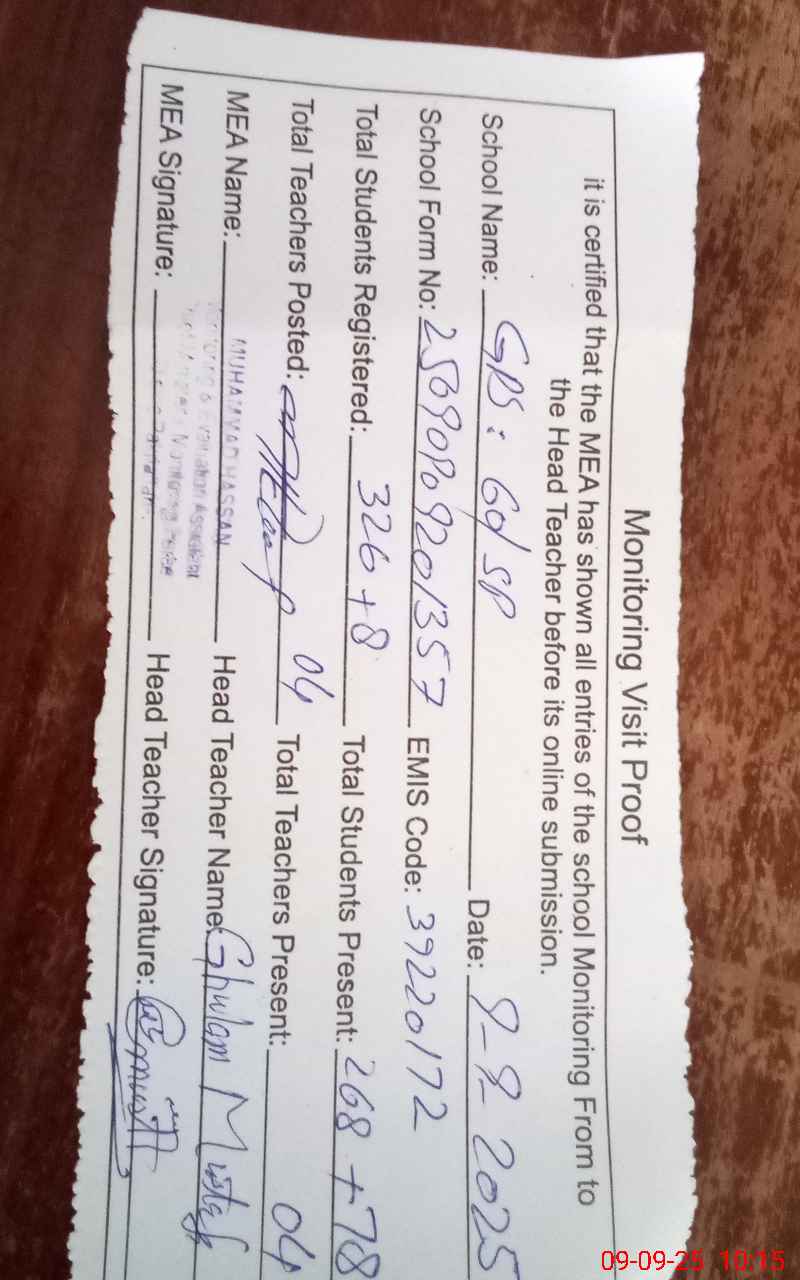 Monitoring Visit Proof
it is certified that the MEA has shown all entries of the school Monitoring From to
the Head Teacher before its online submission.
School Name: GPS: 60/SP Date: 9-9-2025
School Form No: 2509090920 1357 EMIS Code: 39220172
Total Students Registered: 326+8 Total Students Present: 268+78
Total Teachers Posted: 04 Total Teachers Present: 04
MEA Name: MUHAMMAD HASSAN Head Teacher Name: Ghulam Mustafa
Monitoring & Evaluation Assistant
MEA Signature: Head Teacher Signature:
09-09-25 10:15